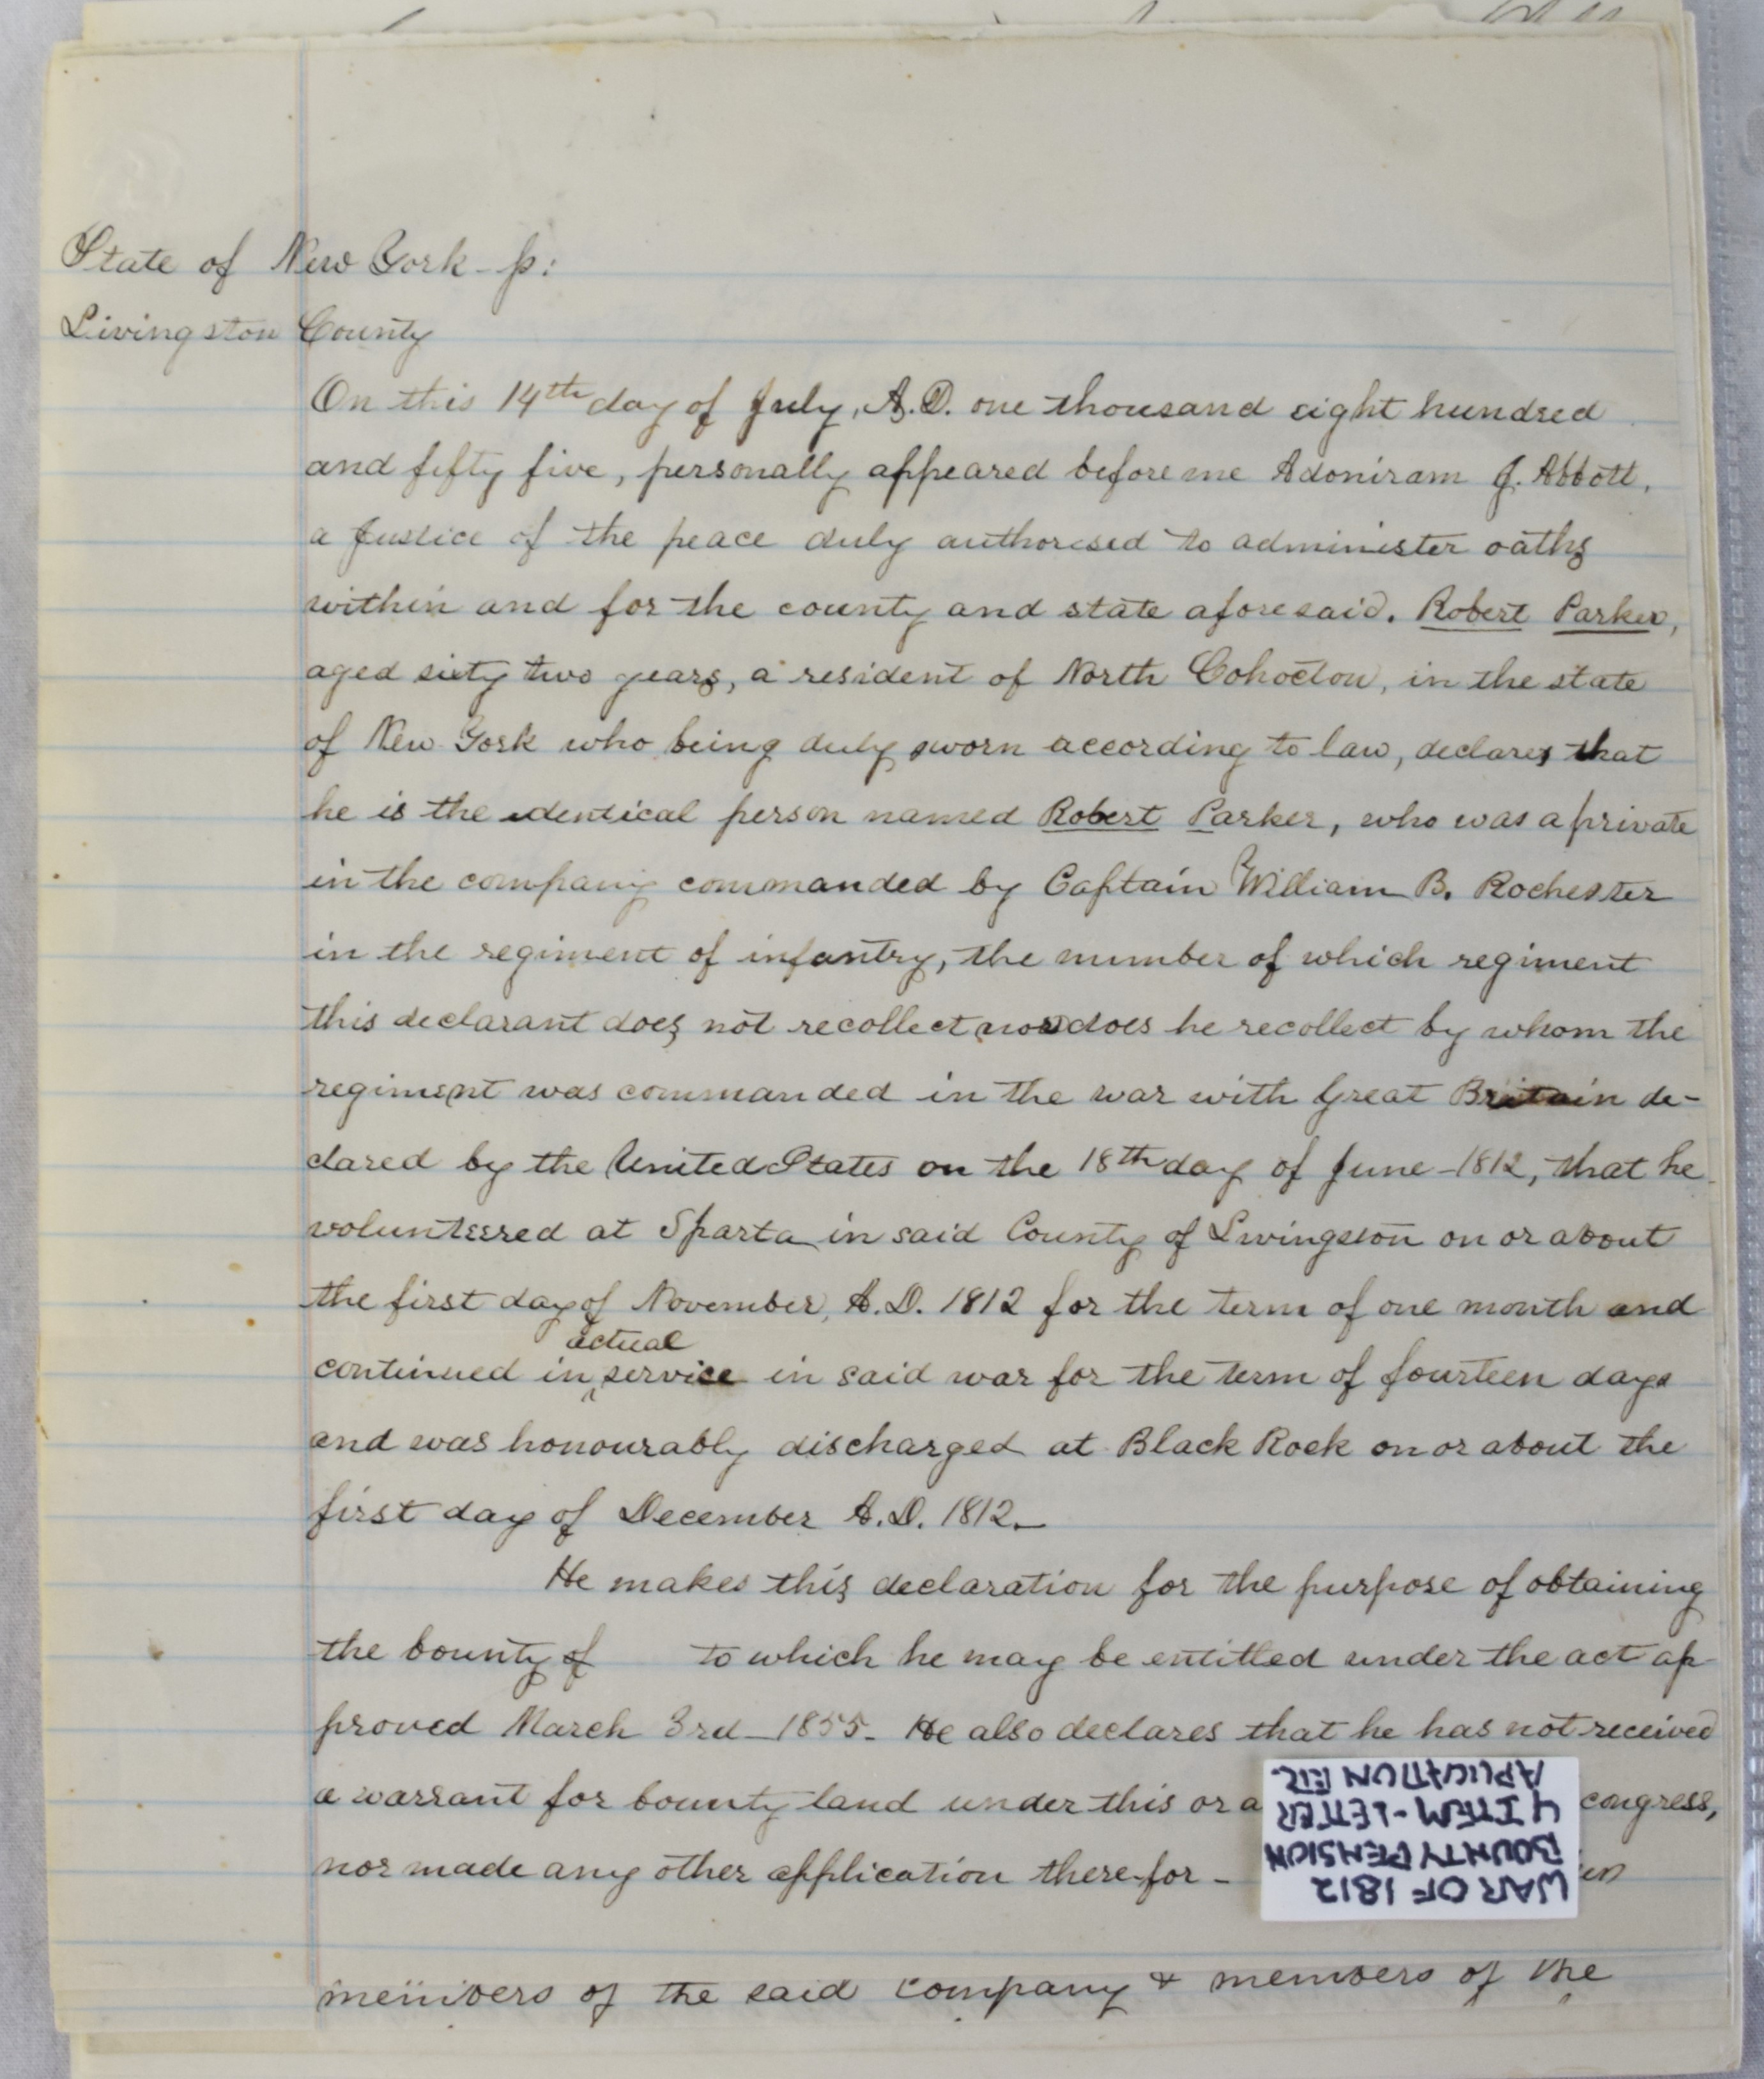 State of New York - ss:
Livingston County
On this 14th day of July, A.D. one thousand eight hundred
and fifty five, personally appeared before me Adoniram J. Abbott,
a Justice of the peace duly authorised to administer oaths
within and for the county and state aforesaid. Robert Parker,
aged sixty two years, a resident of North Cohocton, in the state
of New York who being duly sworn according to law, declares that
he is the identical person named Robert Parker, who was a private
in the company commanded by Captain William B. Rochester
in the regiment of infantry, the number of which regiment
this declarant does not recollect nor does he recollect by whom the
regiment was commanded in the war with Great Britain de-
clared by the United States on the 18th day of June - 1812, that he
volunteered at Sparta in said County of Livingston on or about
the first day of November, A.D. 1812 for the term of one month and
continued in actual service in said war for the term of fourteen days
and was honourably discharged at Black Rock on or about the
first day of December A.D. 1812.
He makes this declaration for the purpose of obtaining
the bounty of to which he may be entitled under the act ap
proved March 3rd - 1855 - He also declares that he has not received
a warrant for bounty land under this or a congress,
nor made any other application therefor -
members of the said company & members of the
WAR OF 1812
BOUNTY PENSION
4 ITEM - LETTER
APLICATION ETC.